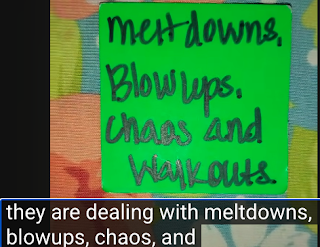 meltdowns,
Blowups.
Chaos and
Walkouts.
they are dealing with meltdowns,
blowups, chaos, and